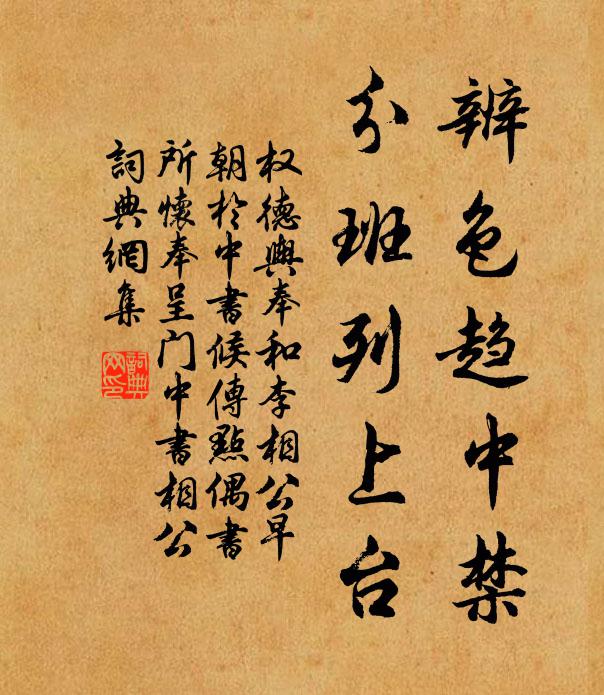 辨色趋中禁
分班列上台
权德舆奉和李相公早
朝於中书候传点偶书
所怀奉呈门中书相公
词典网集
詞典
网印